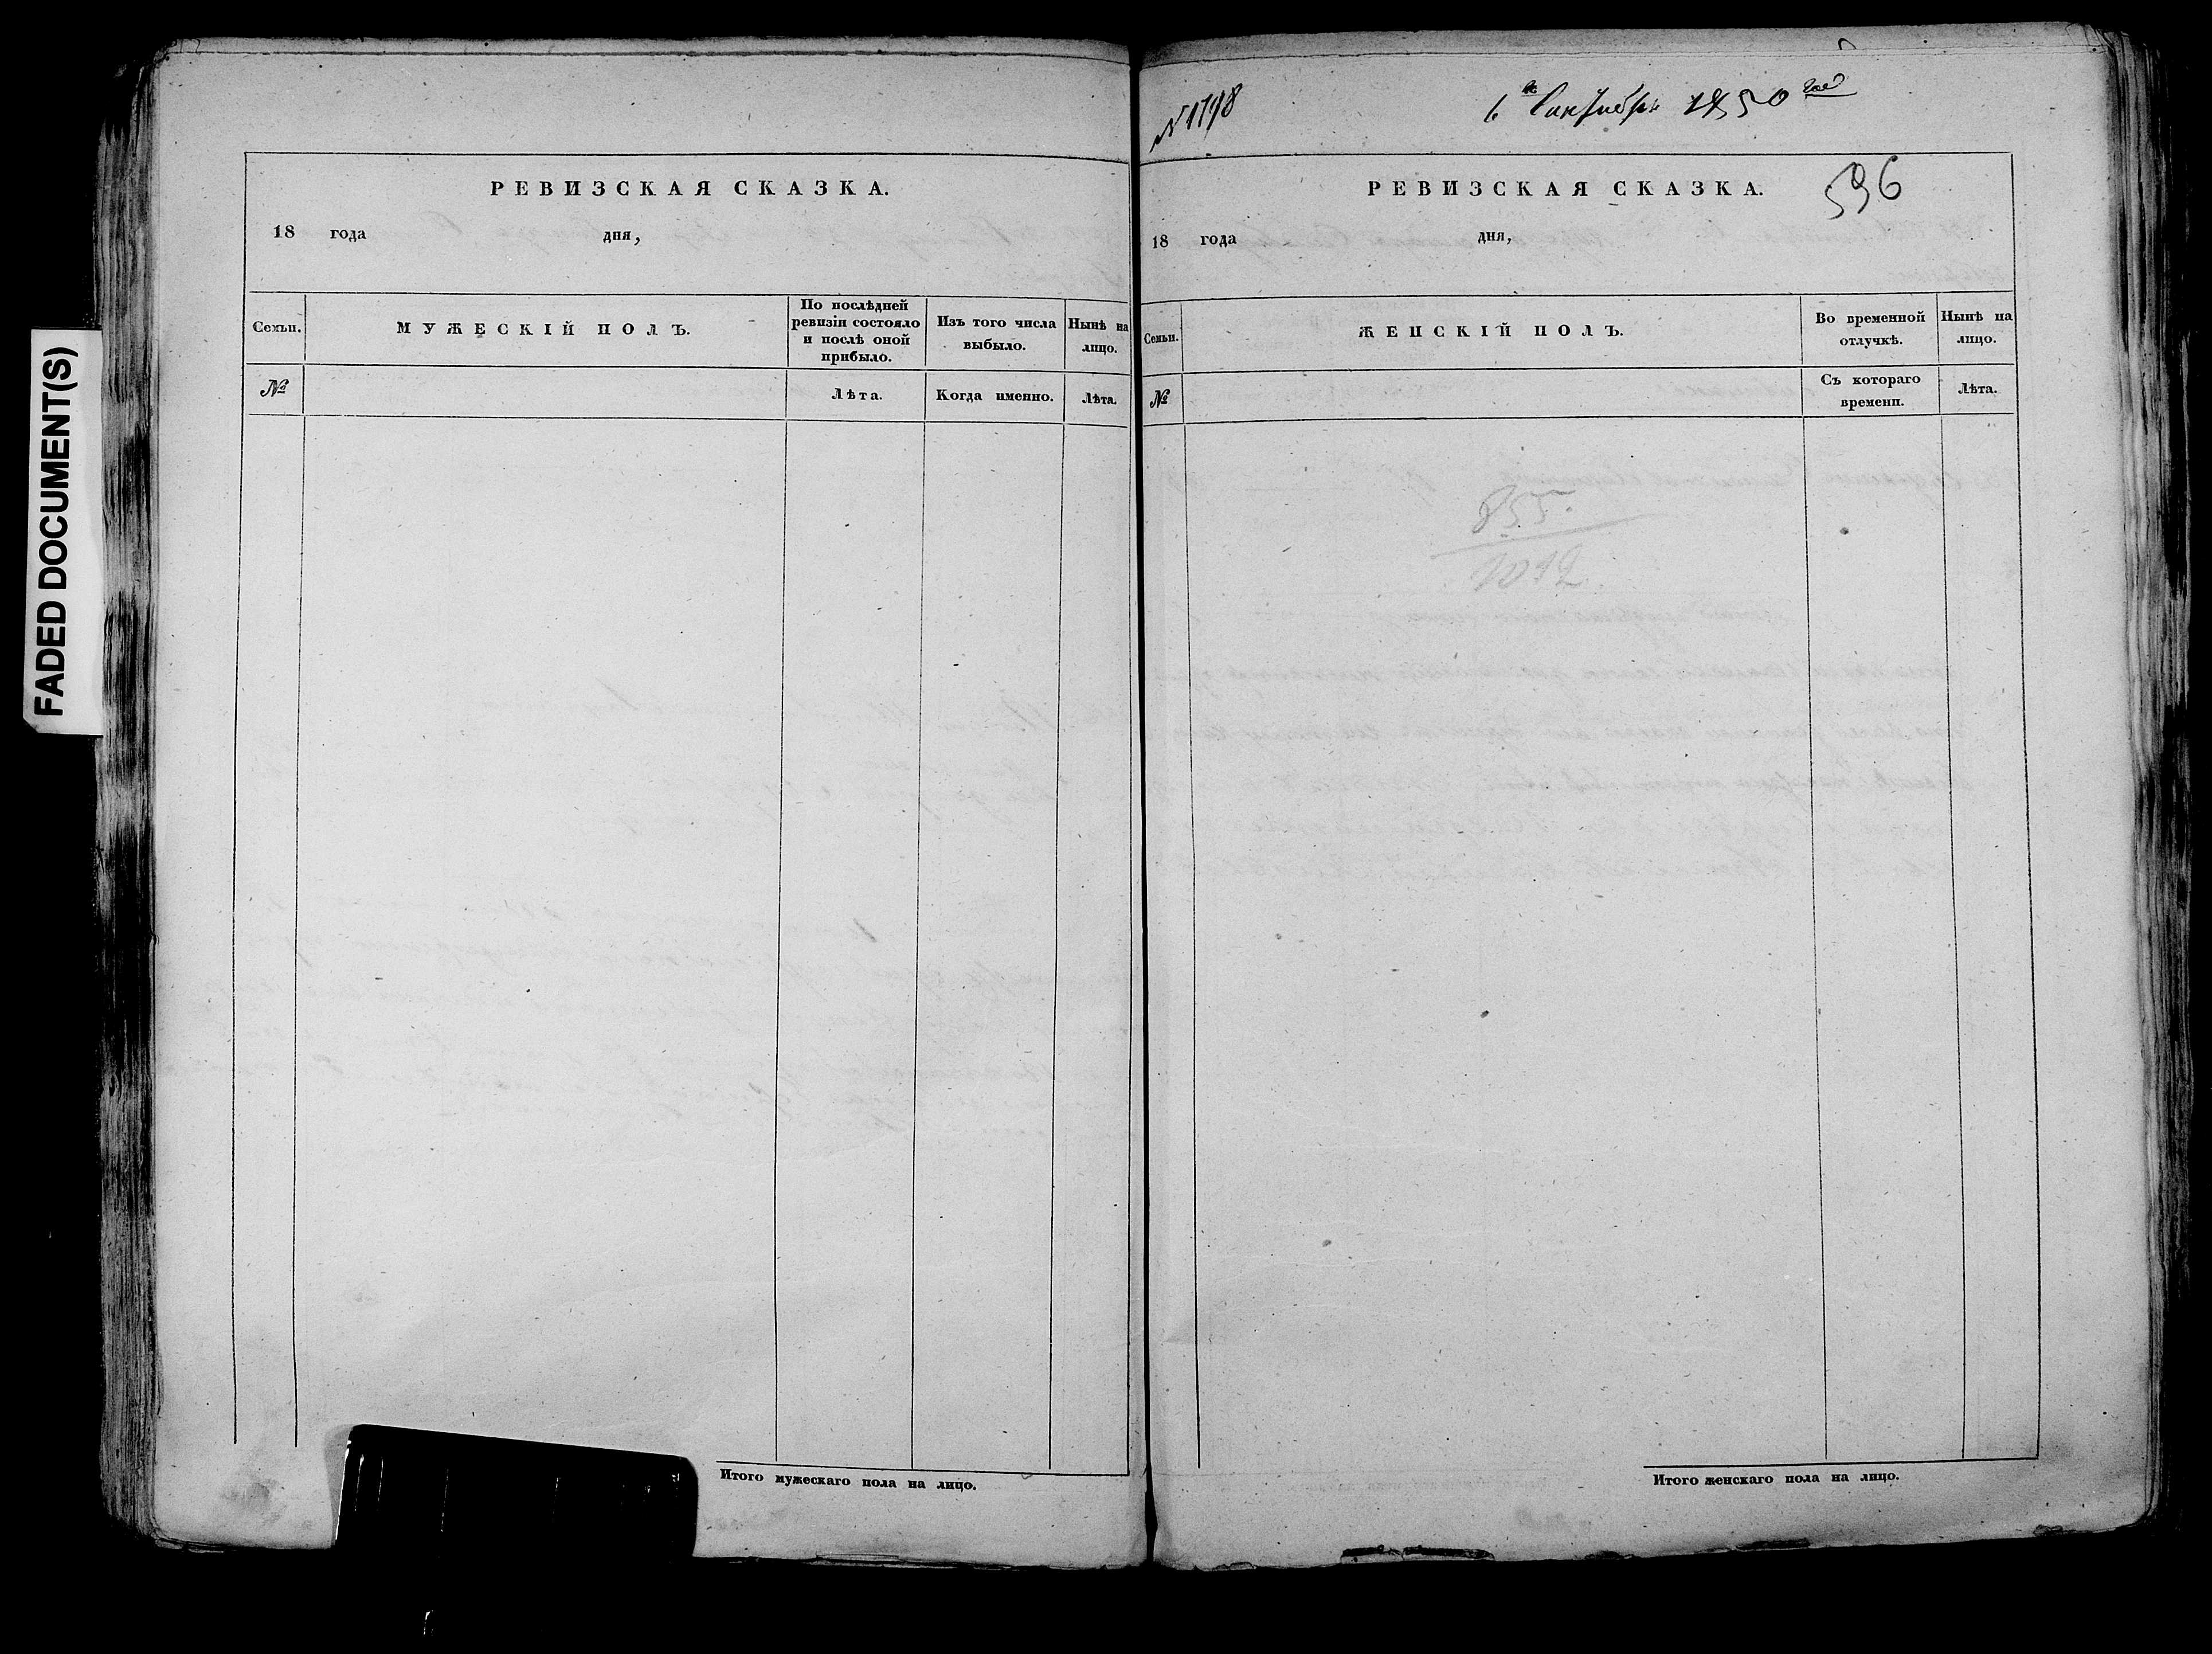 FADED DOCUMENT(S)
РЕВИЗСКАЯ СКАЗКА.
18 года дня,
Семьи.
МУЖЕСКІЙ ПОЛЪ.
По послѣдней
ревизіи состояло
и послѣ оной
прибыло.
Изъ того числа
выбыло.
Нынѣ на
лицо.
№
Лѣта.
Когда именно.
Лѣта.
Итого мужескаго пола на лицо.
N 1198
6 Сентября 1850 год
596
РЕВИЗСКАЯ СКАЗКА.
18 года дня,
Семьи.
ЖЕНСКІЙ ПОЛЪ.
Во временной
отлучкѣ.
Нынѣ на
лицо.
№
Съ котораго
времени.
Лѣта.
855.
1012
Итого женскаго пола на лицо.